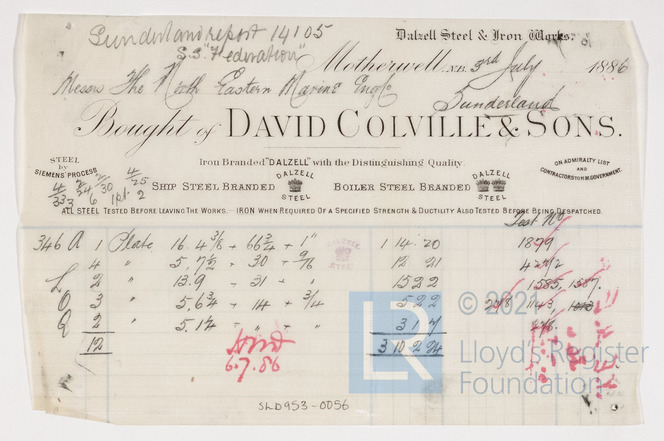 Sunderland report 14105
S.S "Federation"
Dalzell Steel & Iron Works.
Motherwell, N.B. 3rd July 1886
Messrs The North Eastern Marine Eng Co
Sunderland
Bought of DAVID COLVILLE & SONS.
Iron Branded "DALZELL" with the Distinguishing Quality.
STEEL
by
SIEMENS' PROCESS
SHIP STEEL BRANDED
DALZELL
STEEL
BOILER STEEL BRANDED
DALZELL
STEEL
ON ADMIRALTY LIST
AND
CONTRACTORS TO H.M. GOVERNMENT.
ALL STEEL TESTED BEFORE LEAVING THE WORKS.—IRON WHEN REQUIRED OF A SPECIFIED STRENGTH & DUCTILITY ALSO TESTED BEFORE BEING DESPATCHED.
Test No/
346 A 1 Plate 16.4 3/8 + 66 3/4 + 1" 1 14 20
4 " 5.7 1/2 - 30 - 9/16 12 21
2 " 13.9 - 31 - " 15 2 2 1585, 1587.
3 " 5.6 3/4 - 14 + 3/4 5 2 2
2 " 5.14 - " - " 3 1 7
12 3 10 2 24
6.7.86
© 2021
Lloyd's Register
Foundation
LR
SLD953-0056